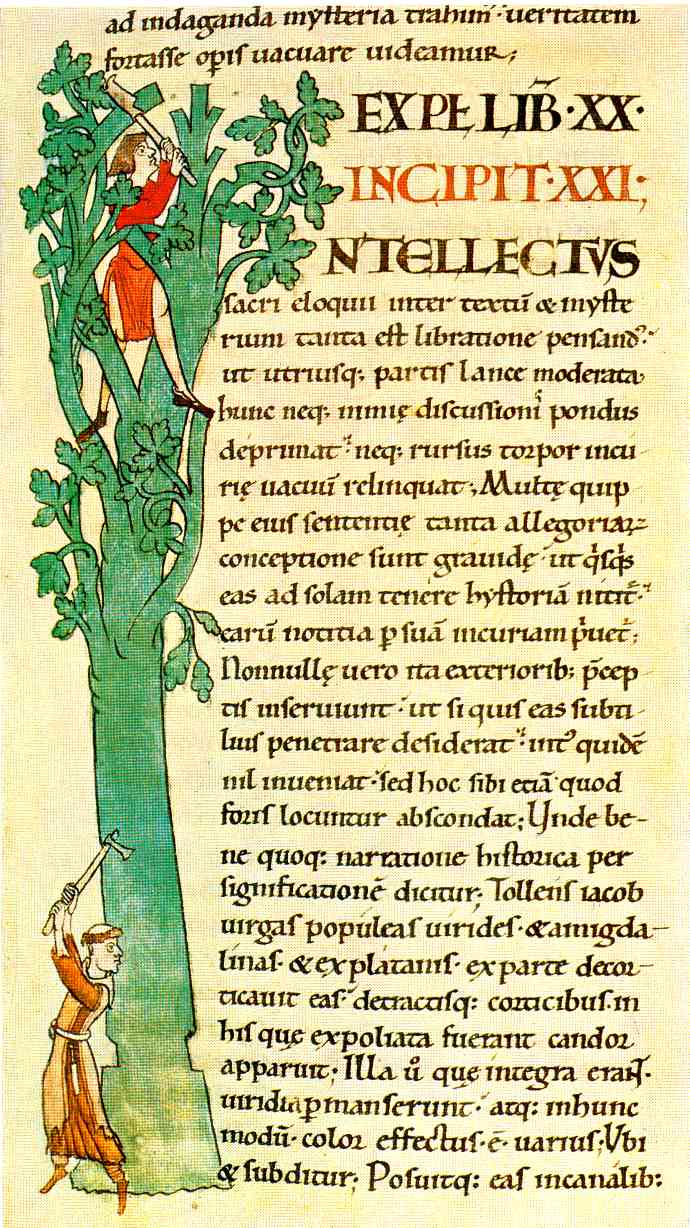 ad indaganda mysteria trahim᷑ · ueritatem
fortasse opis uacuare uideamur;
EXPḶ LIB̄·XX·
INCIPIT·XXI·;
NTELLECTVS
sacri eloquii inter textū & myste
rium tanta est libratione pensand᷒·
ut utriusq; partis lance moderata
hunc neq; nimię discussionis pondus
deprimat · neq; rursus torpor incu
rię uacuū relinquat; Multę quip
pe eius sententię tanta allegoriaꝝ
conceptione sunt grauidę · ut q̇sq̇s
eas ad solam tenere hystoriā nitit᷑ ·
earū notitia ꝑ suā incuriam p̍uet᷑;
Nonnullę uero ita exteriorib; p̄cep
tis inseruiunt · ut si quis eas subti
lius penetrare desiderat · int᷒ quidē
nil inueniat · sed hoc sibi etiā quod
foris locuntur abscondat; Vnde be-
ne quoq; narratione historica per
significationē dicitur; Tollens iacob
uirgas populeas uirides · & amigda-
linas · & ex platanis · ex parte decor-
ticauit eas · detractisq; corticibus · in
his quę expoliata fuerant candor
apparuit; Illa ů quę integra eraɴt·
uiridia ꝑmanserunt · atq; in hunc
modū · color effectus · ē · uarius; Vbi
& subditur; Posuitq; eas in canalib;